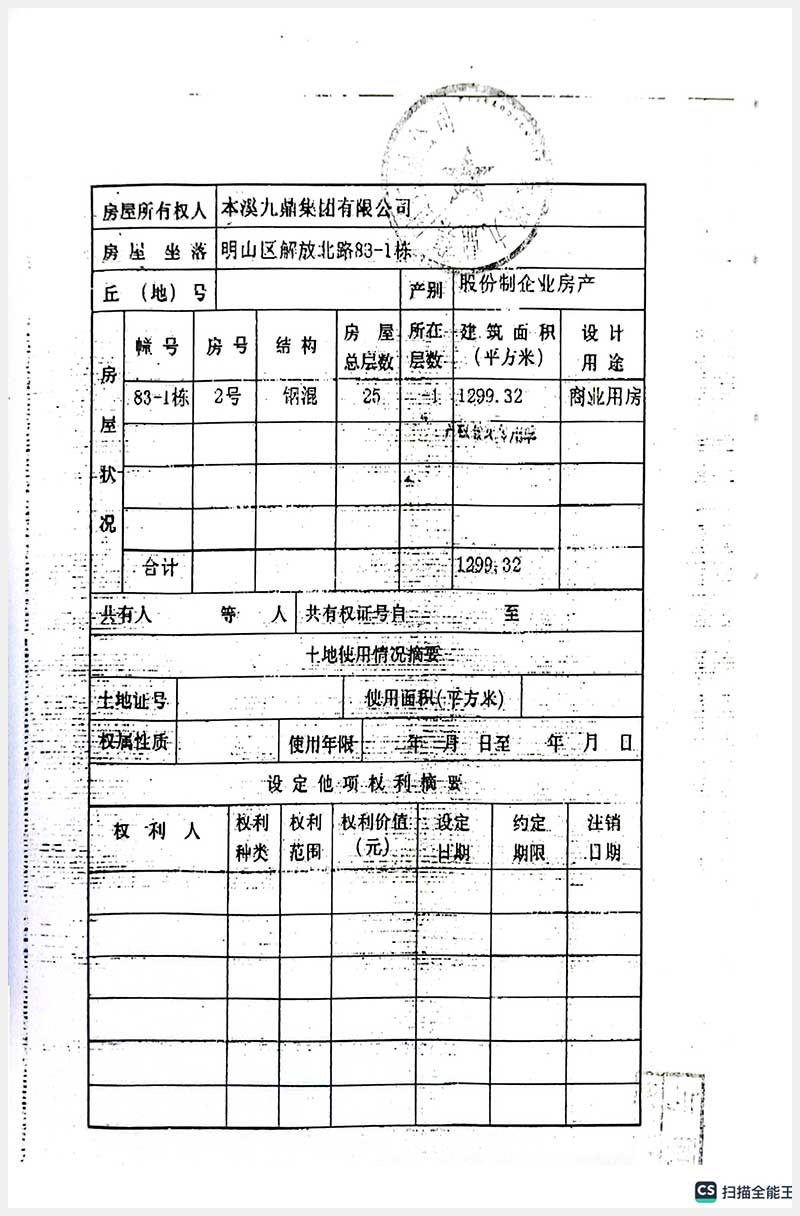 房屋所有权人 本溪九鼎集团有限公司
房屋坐落 明山区解放北路83-1栋
丘（地）号 产别 股份制企业房产
房屋状况 幢号 房号 结构 房屋总层数 所在层数 建筑面积（平方米） 设计用途
83-1栋 2号 钢混 25 -1 1299.32 商业用房
合计 1299.32
共有人 等 人 共有权证号自 至
土地使用情况摘要
土地证号 使用面积(平方米)
权属性质 使用年限 年 月 日至 年 月 日
设定他项权利摘要
权利人 权利种类 权利范围 权利价值（元） 设定日期 约定期限 注销日期
CS 扫描全能王